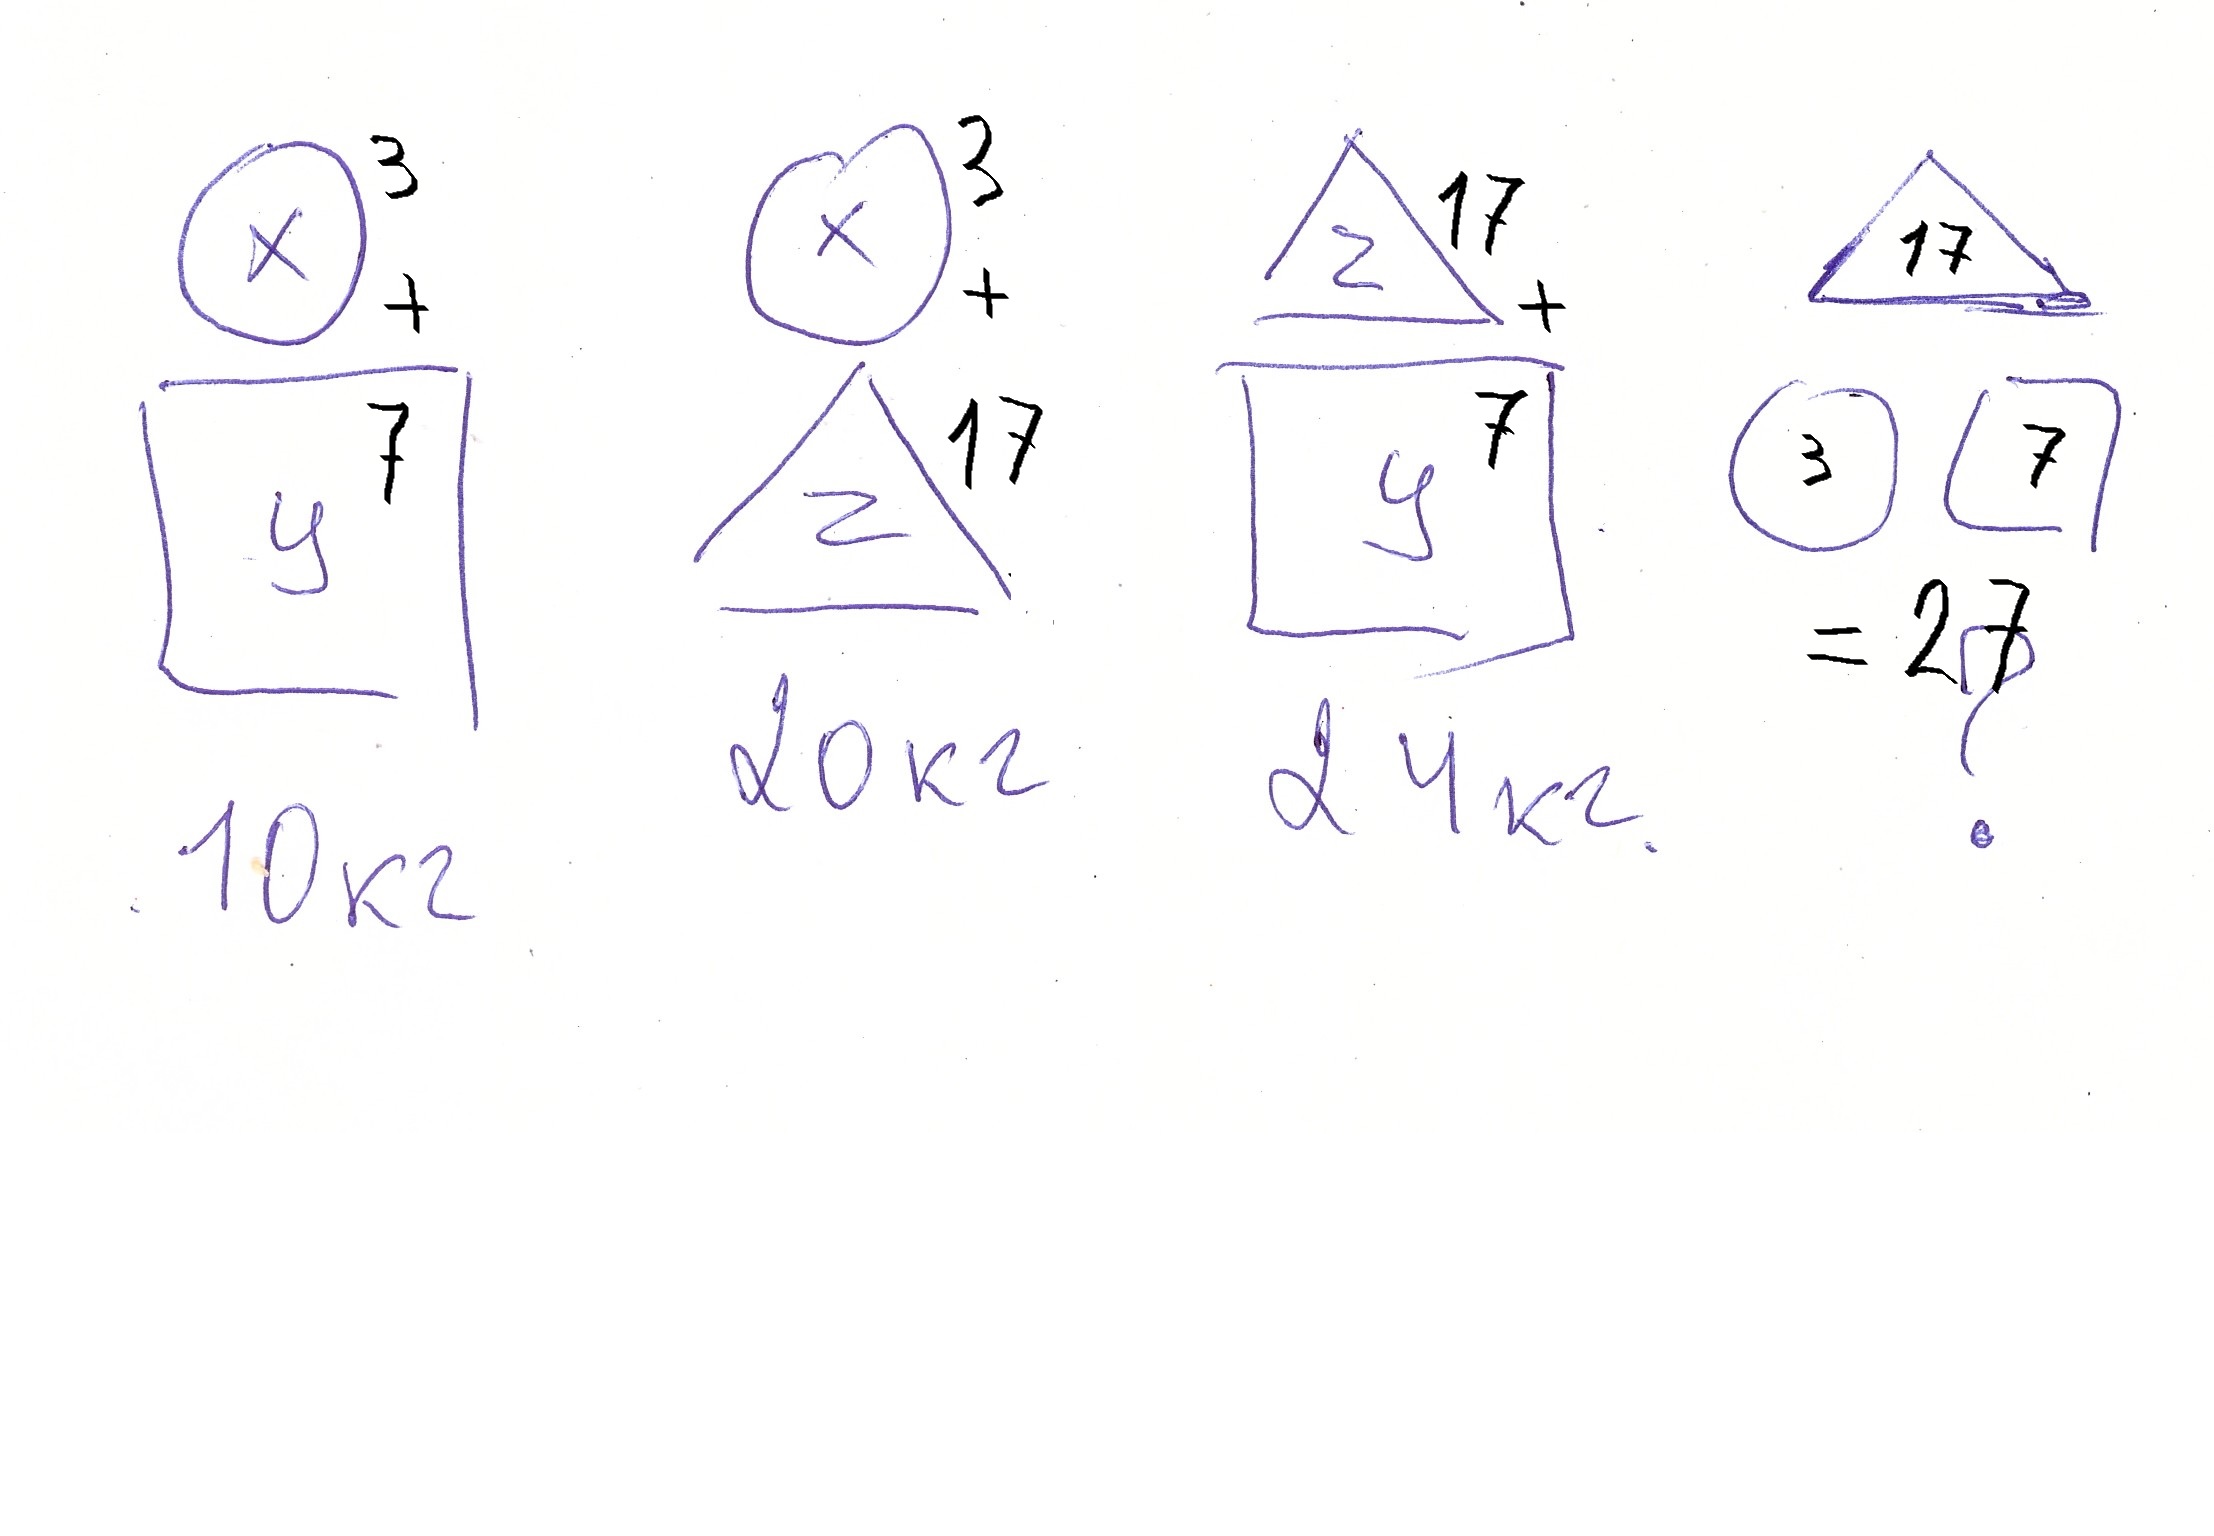 x 3
+
y 7
10кг
x 3
+
z 17
20кг
z 17
+
y 7
24кг.
17
3 7
= 27
?